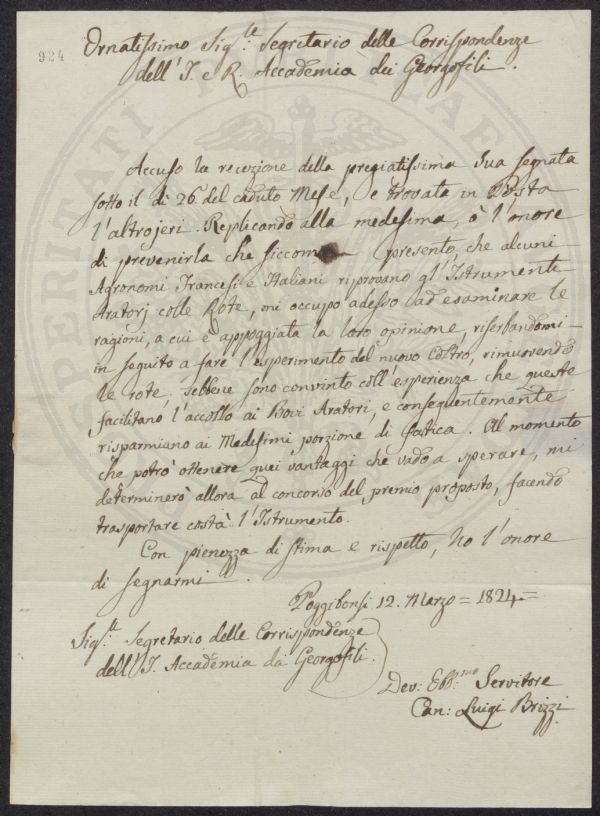 924
Ornatissimo Sig.le Segretario delle Corrispondenze
dell' I. e R. Accademia dei Georgofili.
Accuso la recezione della pregiatissima Sua segnata
sotto il dì 26 del caduto Mese, e trovata in Posta
l'altrojeri. Replicando alla medesima, ò l'onore
di prevenirla che siccome presento, che alcuni
Agronomi Francesi e Italiani riprovano gl'Istrumenti
Aratorj colle Rote, mi occupo adesso ad esaminare le
ragioni, a cui è appoggiata la loro opinione, riserbandomi
in seguito a fare l'esperimento del nuovo Coltro, rimuovendo
le rote; sebbene sono convinto coll'esperienza che queste
facilitano l'accollo ai Bovi Aratori, e conseguentemente
risparmiano ai Medesimi porzione di fatica. Al momento
che potrò ottenere quei vantaggi che vado a sperare, mi
determinerò allora al concorso del premio proposto, facendo
trasportare costà l'Istrumento.
Con pienezza di stima e rispetto, ho l'onore
di segnarmi.
Poggibonsi 12. Marzo = 1824 =
Sig.le Segretario delle Corrispondenze
dell'I. Accademia da Georgofili.
Dev: Obb.mo Servitore
Can: Luigi Brizzi